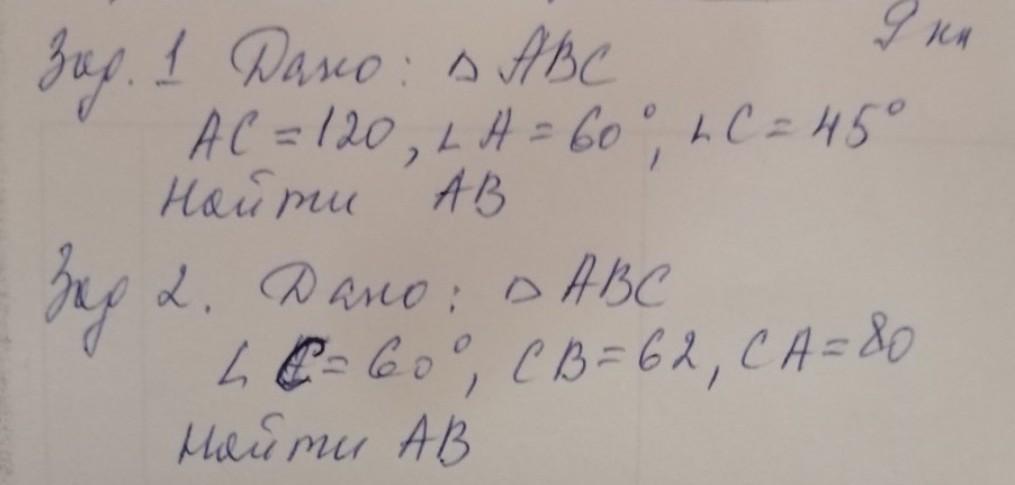 9 кл
Зад. 1 Дано: △ ABC
AC = 120, ∠A = 60°, ∠C = 45°
Найти AB
Зад 2. Дано: △ ABC
∠ C = 60°, CB = 62, CA = 80
Найти AB